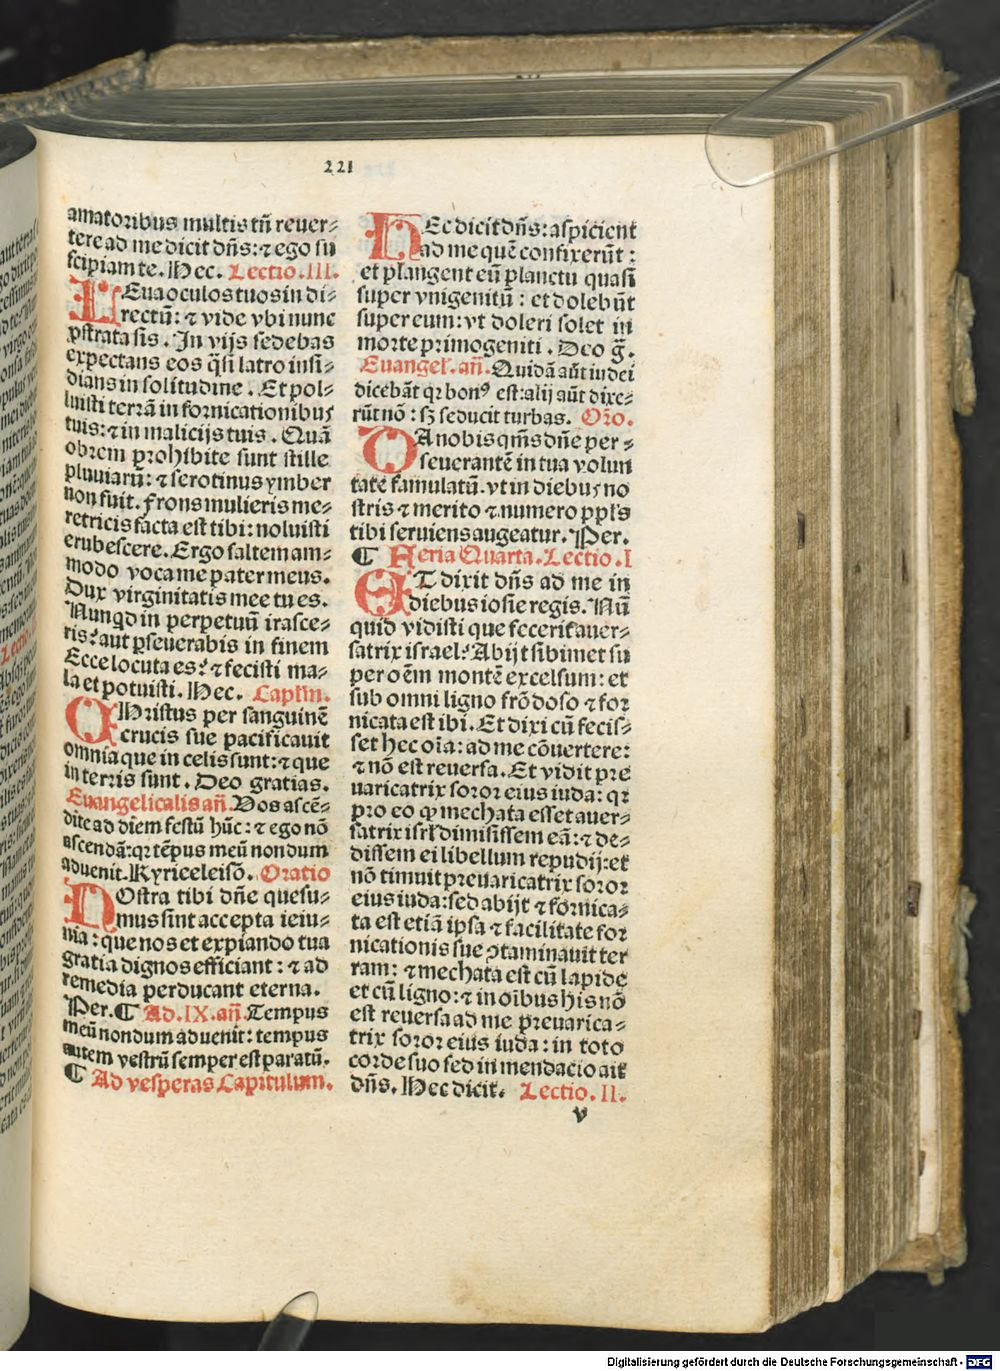 221
amatoribus multis tñ reuer⸗
tere ad me dicit dñs: ⁊ ego su
scipiam te. Hec. Lectio. III.
LEua oculos tuos in di⸗
rectũ: ⁊ vide vbi nunc
ꝓstrata sis. In vijs sedebas
expectans eos q̃si latro insi⸗
dians in solitudine. Et pol⸗
luisti terrã in fornicationibus
tuis: ⁊ in malicijs tuis. Quã
obrem prohibite sunt stille
pluuiarũ: ⁊ serotinus ymber
non fuit. frons mulieris me⸗
retricis facta est tibi: noluisti
erubescere. Ergo saltem am⸗
modo voca me pater meus.
Dux virginitatis mee tu es.
Nunqd in perpetuũ irasce⸗
ris? aut ꝑseuerabis in finem
Ecce locuta es? ⁊ fecisti ma⸗
la et potuisti. Hec. Caplm.
CHristus per sanguinẽ
crucis sue pacificauit
omnia que in celis sunt: ⁊ que
in terris sunt. Deo gratias.
Euangelicalis añ. Vos ascẽ⸗
dite ad diem festũ hũc: ⁊ ego nõ
ascendã: qꝛ tẽpus meũ nondum
aduenit. Kyrieeleisõ. Oratio
NOstra tibi dñe quesu⸗
mus sint accepta ieiu⸗
nia: que nos et expiando tua
gratia dignos efficiant: ⁊ ad
remedia perducant eterna.
Per. ¶ Ad. IX. añ. Tempus
meũ nondum aduenit: tempus
autem vestrũ semper est paratũ.
¶ Ad vesperas Capitulum.
HEc dicit dñs: aspicient
ad me quẽ confixerũt:
et plangent eũ planctu quasi
super vnigenitũ: et dolebũt
super eum: vt doleri solet in
morte primogeniti. Deo g̃.
Euangeł. añ. Quidã aũt iudei
dicebãt qꝛ bonꝰ est: alij aũt dixe⸗
rũt nõ: sꝫ seducit turbas. Orõ.
DA nobis q̃ms dñe per⸗
seuerantẽ in tua volun
tate famulatũ. vt in diebus no
stris ⁊ merito ⁊ numero ppls
tibi seruiens augeatur. Per.
¶ Feria Quarta. Lectio. I
ET dixit dñs ad me in
diebus iosie regis. Nũ
quid vidisti que fecerit auer⸗
satrix israel? Abijt sibimet su
per oẽm montẽ excelsum: et
sub omni ligno frõdoso ⁊ for
nicata est ibi. Et dixi cũ fecis⸗
set hec oĩa: ad me cõuertere:
⁊ nõ est reuersa. Et vidit pre
uaricatrix soror eius iuda: qꝛ
pro eo ꝙ mechata esset auer⸗
satrix isrl dimisissem eã: ⁊ de⸗
dissem ei libellum repudij: et
nõ timuit preuaricatrix soror
eius iuda: sed abijt ⁊ fornica⸗
ta est etiã ipsa ⁊ facilitate for
nicationis sue ꝯtaminauit ter
ram: ⁊ mechata est cũ lapide
et cũ ligno: ⁊ in oĩbus his nõ
est reuersa ad me preuarica⸗
trix soror eius iuda: in toto
corde suo sed in mendacio ait
dñs. Hec dicit. Lectio. II.
v
Digitalisierung gefördert durch die Deutsche Forschungsgemeinschaft - DFG